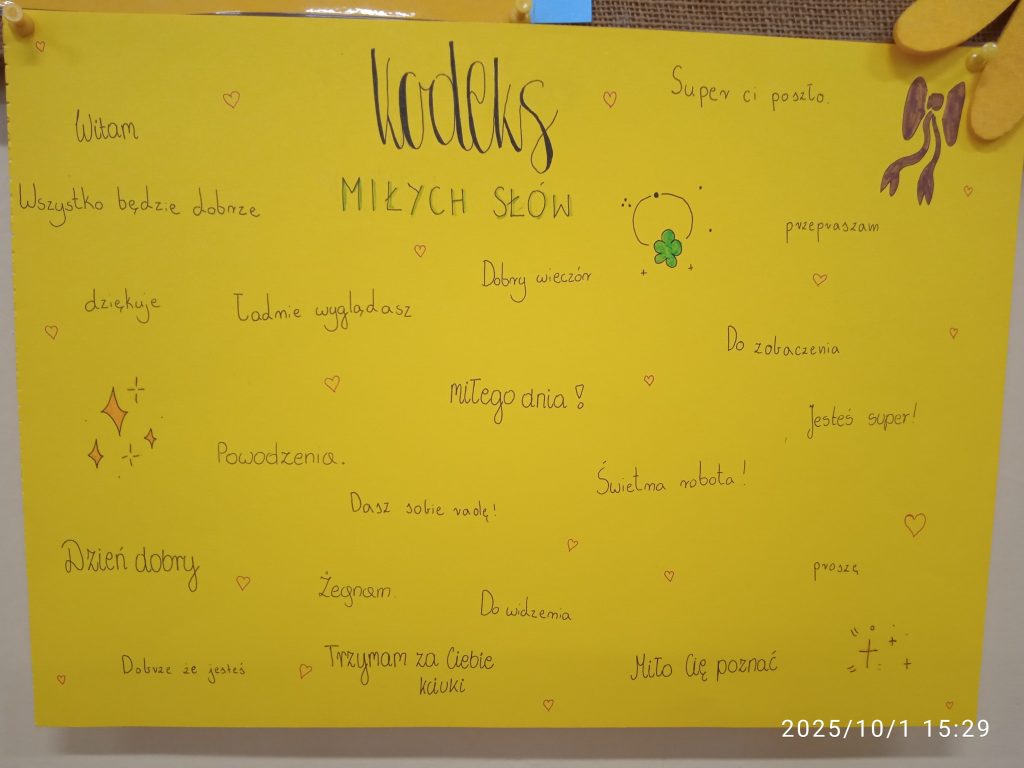 Kodeks
MIŁYCH SŁÓW
Super ci poszło.
Witam
Wszystko będzie dobrze
przepraszam
Dobry wieczór
dziękuje
Ładnie wyglądasz
Do zobaczenia
miłego dnia!
Jesteś super!
Powodzenia.
Świetna robota!
Dasz sobie radę!
Dzień dobry
Żegnam.
Do widzenia
proszę
Dobrze że jesteś
Trzymam za Ciebie
kciuki
Miło Cię poznać
2025/10/1 15:29